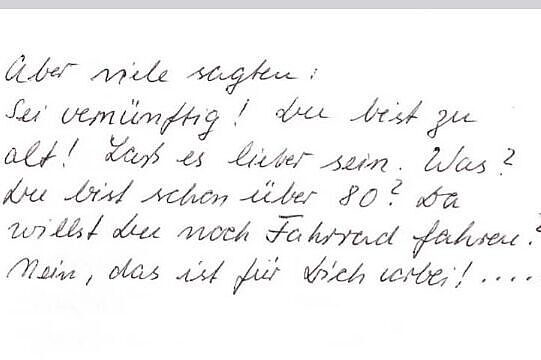 Aber viele sagten:
Sei vernünftig! Du bist zu
alt! Laß es lieber sein. Was?
Du bist schon über 80? Da
willst Du noch Fahrrad fahren?
Nein, das ist für Dich vorbei! ....